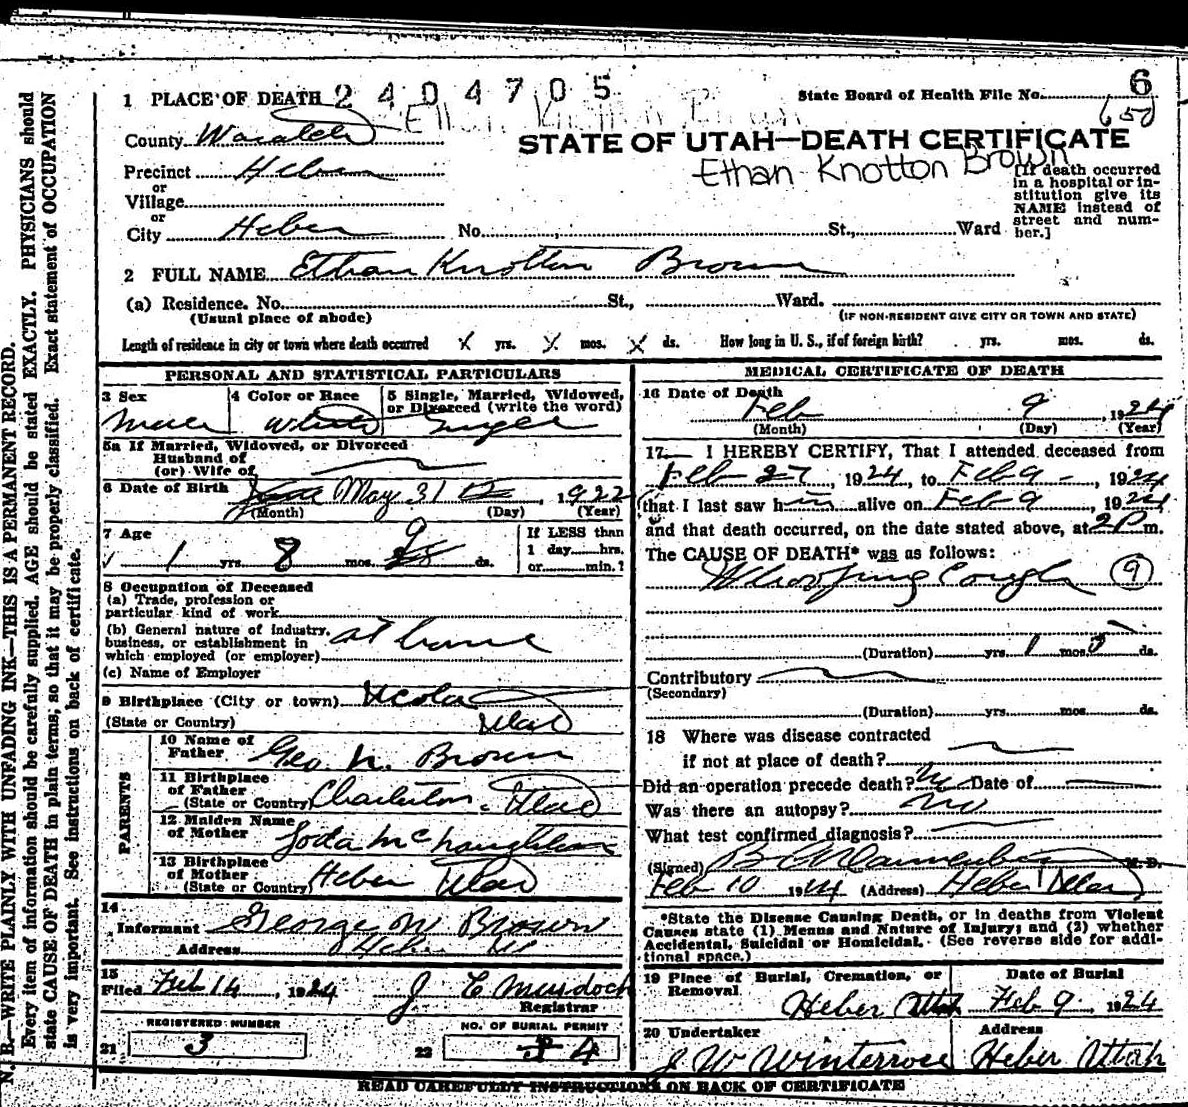 1 PLACE OF DEATH 2404705
State Board of Health File No. 6
650
County Wasatch
STATE OF UTAH—DEATH CERTIFICATE
Ethan Knotton Brown
Precinct Heber
or
Village
or
City Heber No. St., Ward
[If death occurred
in a hospital or in-
stitution give its
NAME instead of
street and num-
ber.]
2 FULL NAME Ethan Knotton Brown
(a) Residence. No. St., Ward.
(Usual place of abode) (IF NON-RESIDENT GIVE CITY OR TOWN AND STATE)
Length of residence in city or town where death occurred X yrs. X mos. X ds. How long in U. S., if of foreign birth? yrs. mos. ds.
PERSONAL AND STATISTICAL PARTICULARS
3 Sex 4 Color or Race 5 Single, Married, Widowed,
or Divorced (write the word)
Male White Single
5a If Married, Widowed, or Divorced
Husband of
(or) Wife of
6 Date of Birth May 31, 1922
(Month) (Day) (Year)
7 Age If LESS than
1 day hrs.
or min.?
1 yrs. 8 mos. 9 ds.
8 Occupation of Deceased
(a) Trade, profession or
particular kind of work
(b) General nature of industry,
business, or establishment in
which employed (or employer) at home
(c) Name of Employer
9 Birthplace (City or town)
(State or Country) Utah
PARENTS
10 Name of
Father Geo. M. Brown
11 Birthplace
of Father
(State or Country) Charleston - Utah
12 Maiden Name
of Mother
13 Birthplace
of Mother
(State or Country) Heber Utah
14
Informant George M Brown
Address Heber Ut
15
Filed Feb 14, 1924 J C Murdock
Registrar
REGISTERED NUMBER NO. OF BURIAL PERMIT
21 3 22 4
MEDICAL CERTIFICATE OF DEATH
16 Date of Death
Feb 9, 1924
(Month) (Day) (Year)
17 I HEREBY CERTIFY, That I attended deceased from
Feb 27, 1924, to Feb 9, 1924
(that I last saw him alive on Feb 9, 1924
and that death occurred, on the date stated above, at 2P m.
The CAUSE OF DEATH* was as follows:
Whooping Cough 9
(Duration) yrs. 1 mos. ds.
Contributory
(Secondary)
(Duration) yrs. mos. ds.
18 Where was disease contracted
if not at place of death?
Did an operation precede death? No Date of
Was there an autopsy? No
What test confirmed diagnosis?
(Signed) M. D.
Feb 10 1924 (Address) Heber Utah
*State the Disease Causing Death, or in deaths from Violent
Causes state (1) Means and Nature of Injury; and (2) whether
Accidental, Suicidal or Homicidal. (See reverse side for addi-
tional space.)
19 Place of Burial, Cremation, or
Removal Date of Burial
Heber Utah Feb 9, 1924
20 Undertaker Address
J W Winterrose Heber Uttah
READ CAREFULLY INSTRUCTIONS ON BACK OF CERTIFICATE
N. B.—WRITE PLAINLY WITH UNFADING INK—THIS IS A PERMANENT RECORD.
Every item of information should be carefully supplied. AGE should be stated EXACTLY. PHYSICIANS should
state CAUSE OF DEATH in plain terms, so that it may be properly classified. Exact statement of OCCUPATION
is very important. See instructions on back of certificate.